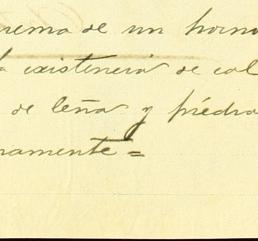 rema de un horno
la existencia de cal
de leña y piedra
ramente =